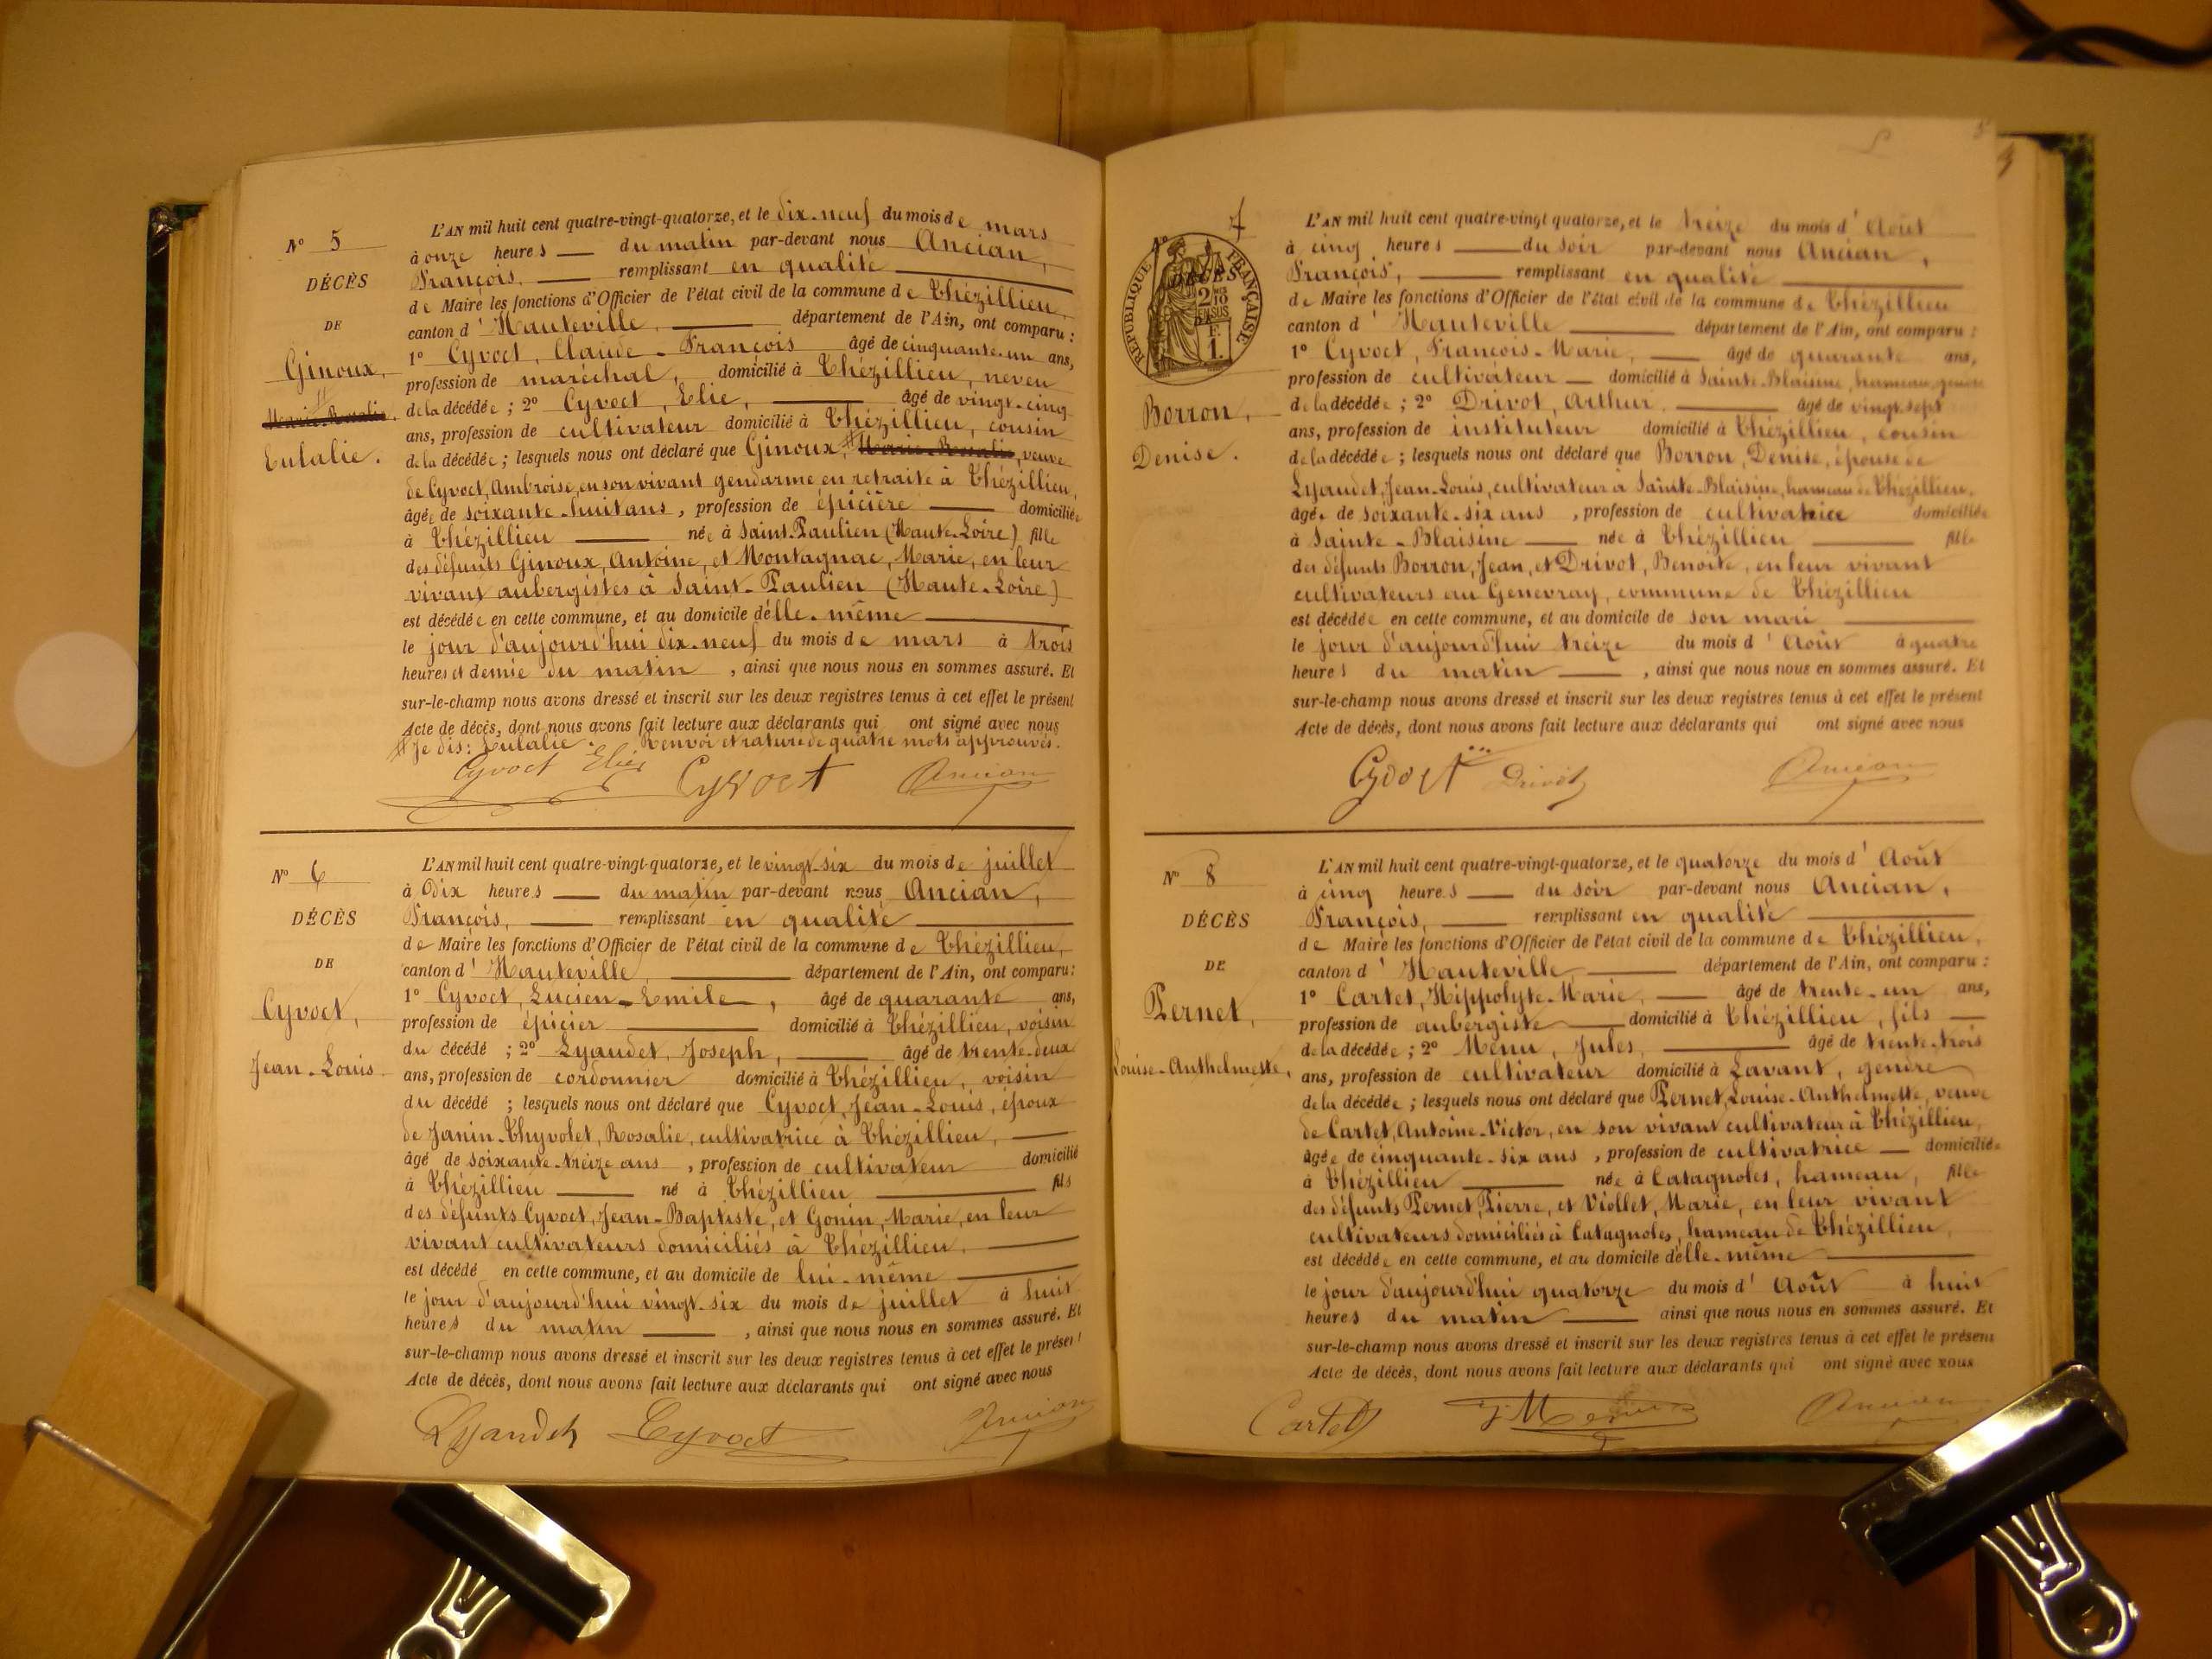 N° 5
DÉCÈS
DE
Ginoux,
#
Marie-Rosalie,
Eulalie.
L'AN mil huit cent quatre-vingt-quatorze, et le dix-neuf du mois de mars
à onze heures — du matin par-devant nous Ancian,
François, — remplissant en qualité
de Maire les fonctions d'Officier de l'état civil de la commune de Thézillieu,
canton d'Hauteville, — département de l'Ain, ont comparu :
1° Cyvoct, Claude-François âgé de cinquante-un ans,
profession de maréchal, domicilié à Thézillieu, neveu
de la décédée ; 2° Cyvoct, Elie, — âgé de vingt-cinq
ans, profession de cultivateur domicilié à Thézillieu, cousin
de la décédée ; lesquels nous ont déclaré que Ginoux, # Marie-Rosalie, veuve
de Cyvoct, Ambroise, en son vivant gendarme en retraite à Thézillieu,
âgée de soixante-huit ans, profession de épicière — domiciliée
à Thézillieu — née à Saint-Paulien (Haute-Loire) fille
des défunts Ginoux, Antoine, et Montagnac, Marie, en leur
vivant aubergistes à Saint-Paulien (Haute-Loire)
est décédée en cette commune, et au domicile d'elle-même
le jour d'aujourd'hui dix-neuf du mois de mars à trois
heures et demie du matin, ainsi que nous nous en sommes assuré. Et
sur-le-champ nous avons dressé et inscrit sur les deux registres tenus à cet effet le présent
Acte de décès, dont nous avons fait lecture aux déclarants qui ont signé avec nous
# Je dis : Eulalie. Renvoi et rature de quatre mots approuvés.
Cyvoct Elie Cyvoct Ancian
N° 6
DÉCÈS
DE
Cyvoct,
Jean-Louis
L'AN mil huit cent quatre-vingt-quatorze, et le vingt-six du mois de juillet
à Dix heures — du matin par-devant nous Ancian,
François, — remplissant en qualité
de Maire les fonctions d'Officier de l'état civil de la commune de Thézillieu,
canton d'Hauteville, — département de l'Ain, ont comparu :
1° Cyvoct, Lucien-Emile, âgé de quarante ans,
profession de épicier — domicilié à Thézillieu, voisin
du décédé ; 2° Lyaudet, Joseph, — âgé de trente-deux
ans, profession de cordonnier domicilié à Thézillieu, voisin
du décédé ; lesquels nous ont déclaré que Cyvoct, Jean-Louis, époux
de Janin-Thyvolet, Rosalie, cultivatrice à Thézillieu, —
âgé de soixante-treize ans, profession de cultivateur domicilié
à Thézillieu — né à Thézillieu — fils
des défunts Cyvoct, Jean-Baptiste, et Gonin, Marie, en leur
vivant cultivateurs domiciliés à Thézillieu. —
est décédé en cette commune, et au domicile de lui-même
le jour d'aujourd'hui vingt-six du mois de juillet à huit
heures du matin —, ainsi que nous nous en sommes assuré. Et
sur-le-champ nous avons dressé et inscrit sur les deux registres tenus à cet effet le présent
Acte de décès, dont nous avons fait lecture aux déclarants qui ont signé avec nous
Lyaudet Cyvoct Ancian
N° 7
RÉPUBLIQUE FRANÇAISE
DÉCÈS
2 10es EN SUS
F. 1.
Borron,
Denise.
L'AN mil huit cent quatre-vingt quatorze, et le treize du mois d'Août
à cinq heures — du soir par-devant nous Ancian,
François, — remplissant en qualité
de Maire les fonctions d'Officier de l'état civil de la commune de Thézillieu
canton d'Hauteville — département de l'Ain, ont comparu :
1° Cyvoct, François-Marie, — âgé de quarante ans,
profession de cultivateur — domicilié à Sainte-Blaisine, hameau, gendre
de la décédée ; 2° Drivot, Arthur, — âgé de vingt-sept
ans, profession de instituteur domicilié à Thézillieu, cousin
de la décédée ; lesquels nous ont déclaré que Borron, Denise, épouse de
Lyaudet, Jean-Louis, cultivateur à Sainte-Blaisine, hameau de Thézillieu,
âgée de soixante-six ans, profession de cultivatrice domiciliée
à Sainte-Blaisine — née à Thézillieu — fille
des défunts Borron, Jean, et Drivot, Benoite, en leur vivant
cultivateurs au Genevray, commune de Thézillieu
est décédée en cette commune, et au domicile de son mari
le jour d'aujourd'hui treize du mois d'Août à quatre
heures du matin —, ainsi que nous nous en sommes assuré. Et
sur-le-champ nous avons dressé et inscrit sur les deux registres tenus à cet effet le présent
Acte de décès, dont nous avons fait lecture aux déclarants qui ont signé avec nous
Cyvoct Drivot Ancian
N° 8
DÉCÈS
DE
Pernet,
Louise-Anthelmette,
L'AN mil huit cent quatre-vingt-quatorze, et le quatorze du mois d'Août
à cinq heures — du soir par-devant nous Ancian,
François, — remplissant en qualité
de Maire les fonctions d'Officier de l'état civil de la commune de Thézillieu,
canton d'Hauteville, — département de l'Ain, ont comparu :
1° Cartet, Hippolyte-Marie, — âgé de trente-un ans,
profession de aubergiste — domicilié à Thézillieu, fils —
de la décédée ; 2° Menu, Jules, — âgé de trente-trois
ans, profession de cultivateur domicilié à Lavant, gendre
de la décédée ; lesquels nous ont déclaré que Pernet, Louise-Anthelmette, veuve
de Cartet, Antoine-Victor, en son vivant cultivateur à Thézillieu,
âgée de cinquante-six ans, profession de cultivatrice — domiciliée
à Thézillieu — née à Catagnoles, hameau, fille
des défunts Pernet, Pierre, et Viollet, Marie, en leur vivant
cultivateurs domiciliés à Catagnoles, hameau de Thézillieu,
est décédée en cette commune, et au domicile d'elle-même
le jour d'aujourd'hui quatorze du mois d'Août à huit
heures du matin — ainsi que nous nous en sommes assuré. Et
sur-le-champ nous avons dressé et inscrit sur les deux registres tenus à cet effet le présent
Acte de décès, dont nous avons fait lecture aux déclarants qui ont signé avec nous
Cartet J Menu Ancian